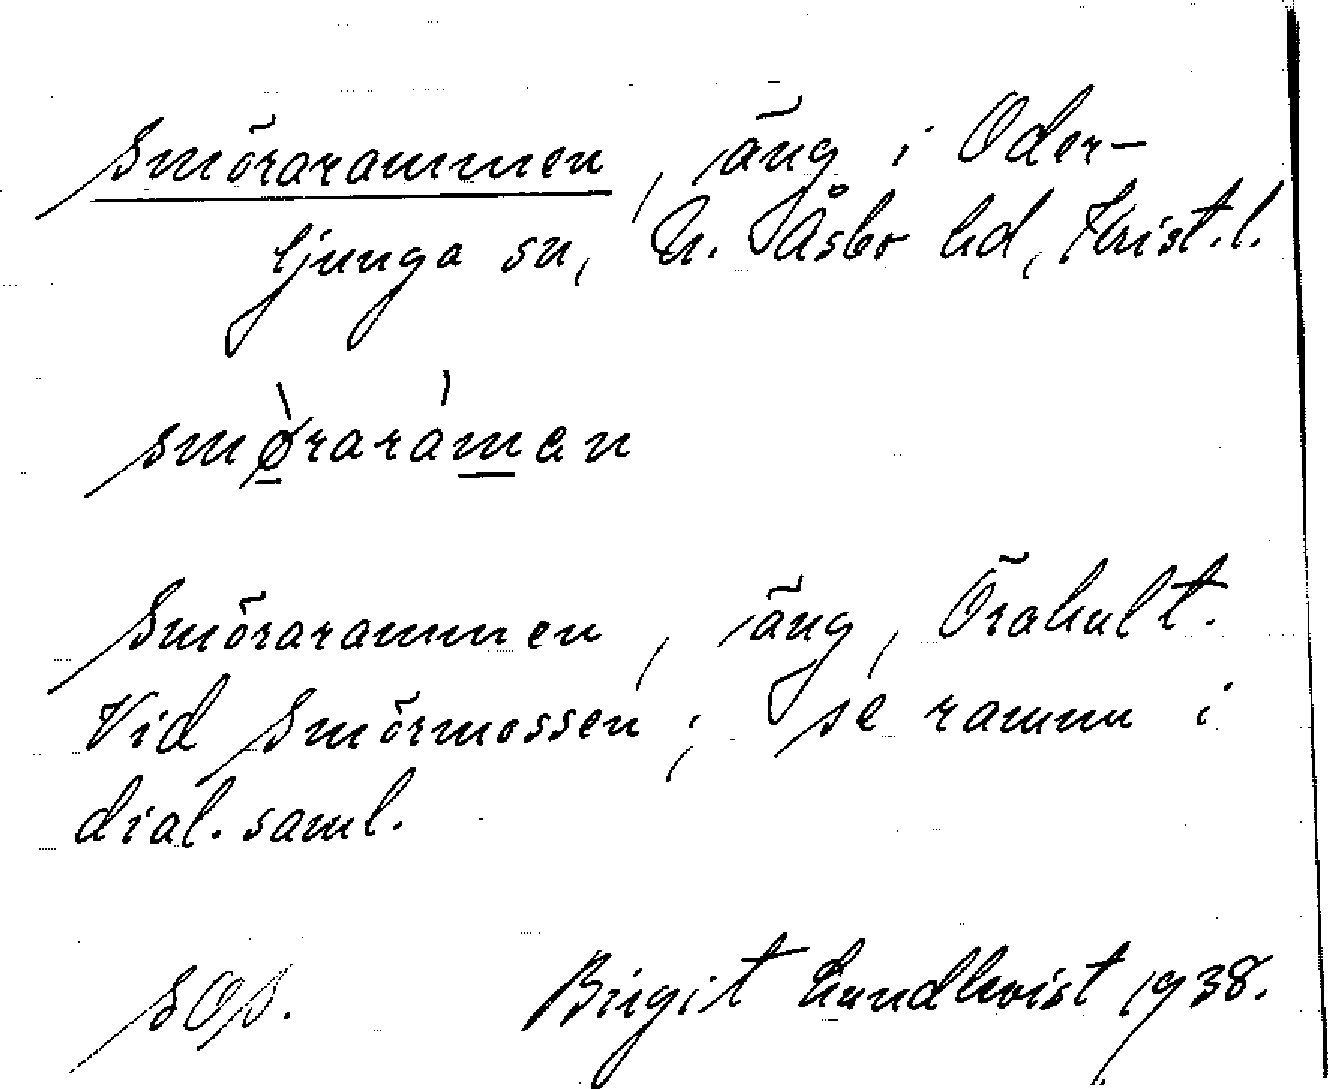 Smörarammen, äng i Oder-
ljunga sn, N. Åsbo hd, Krist. l.
smø̀raráman
Smörarammen, äng, Örahult.
Vid Smörmossen; se ramm i
dial. saml.
SOS. Birgit Lundkvist 1938.